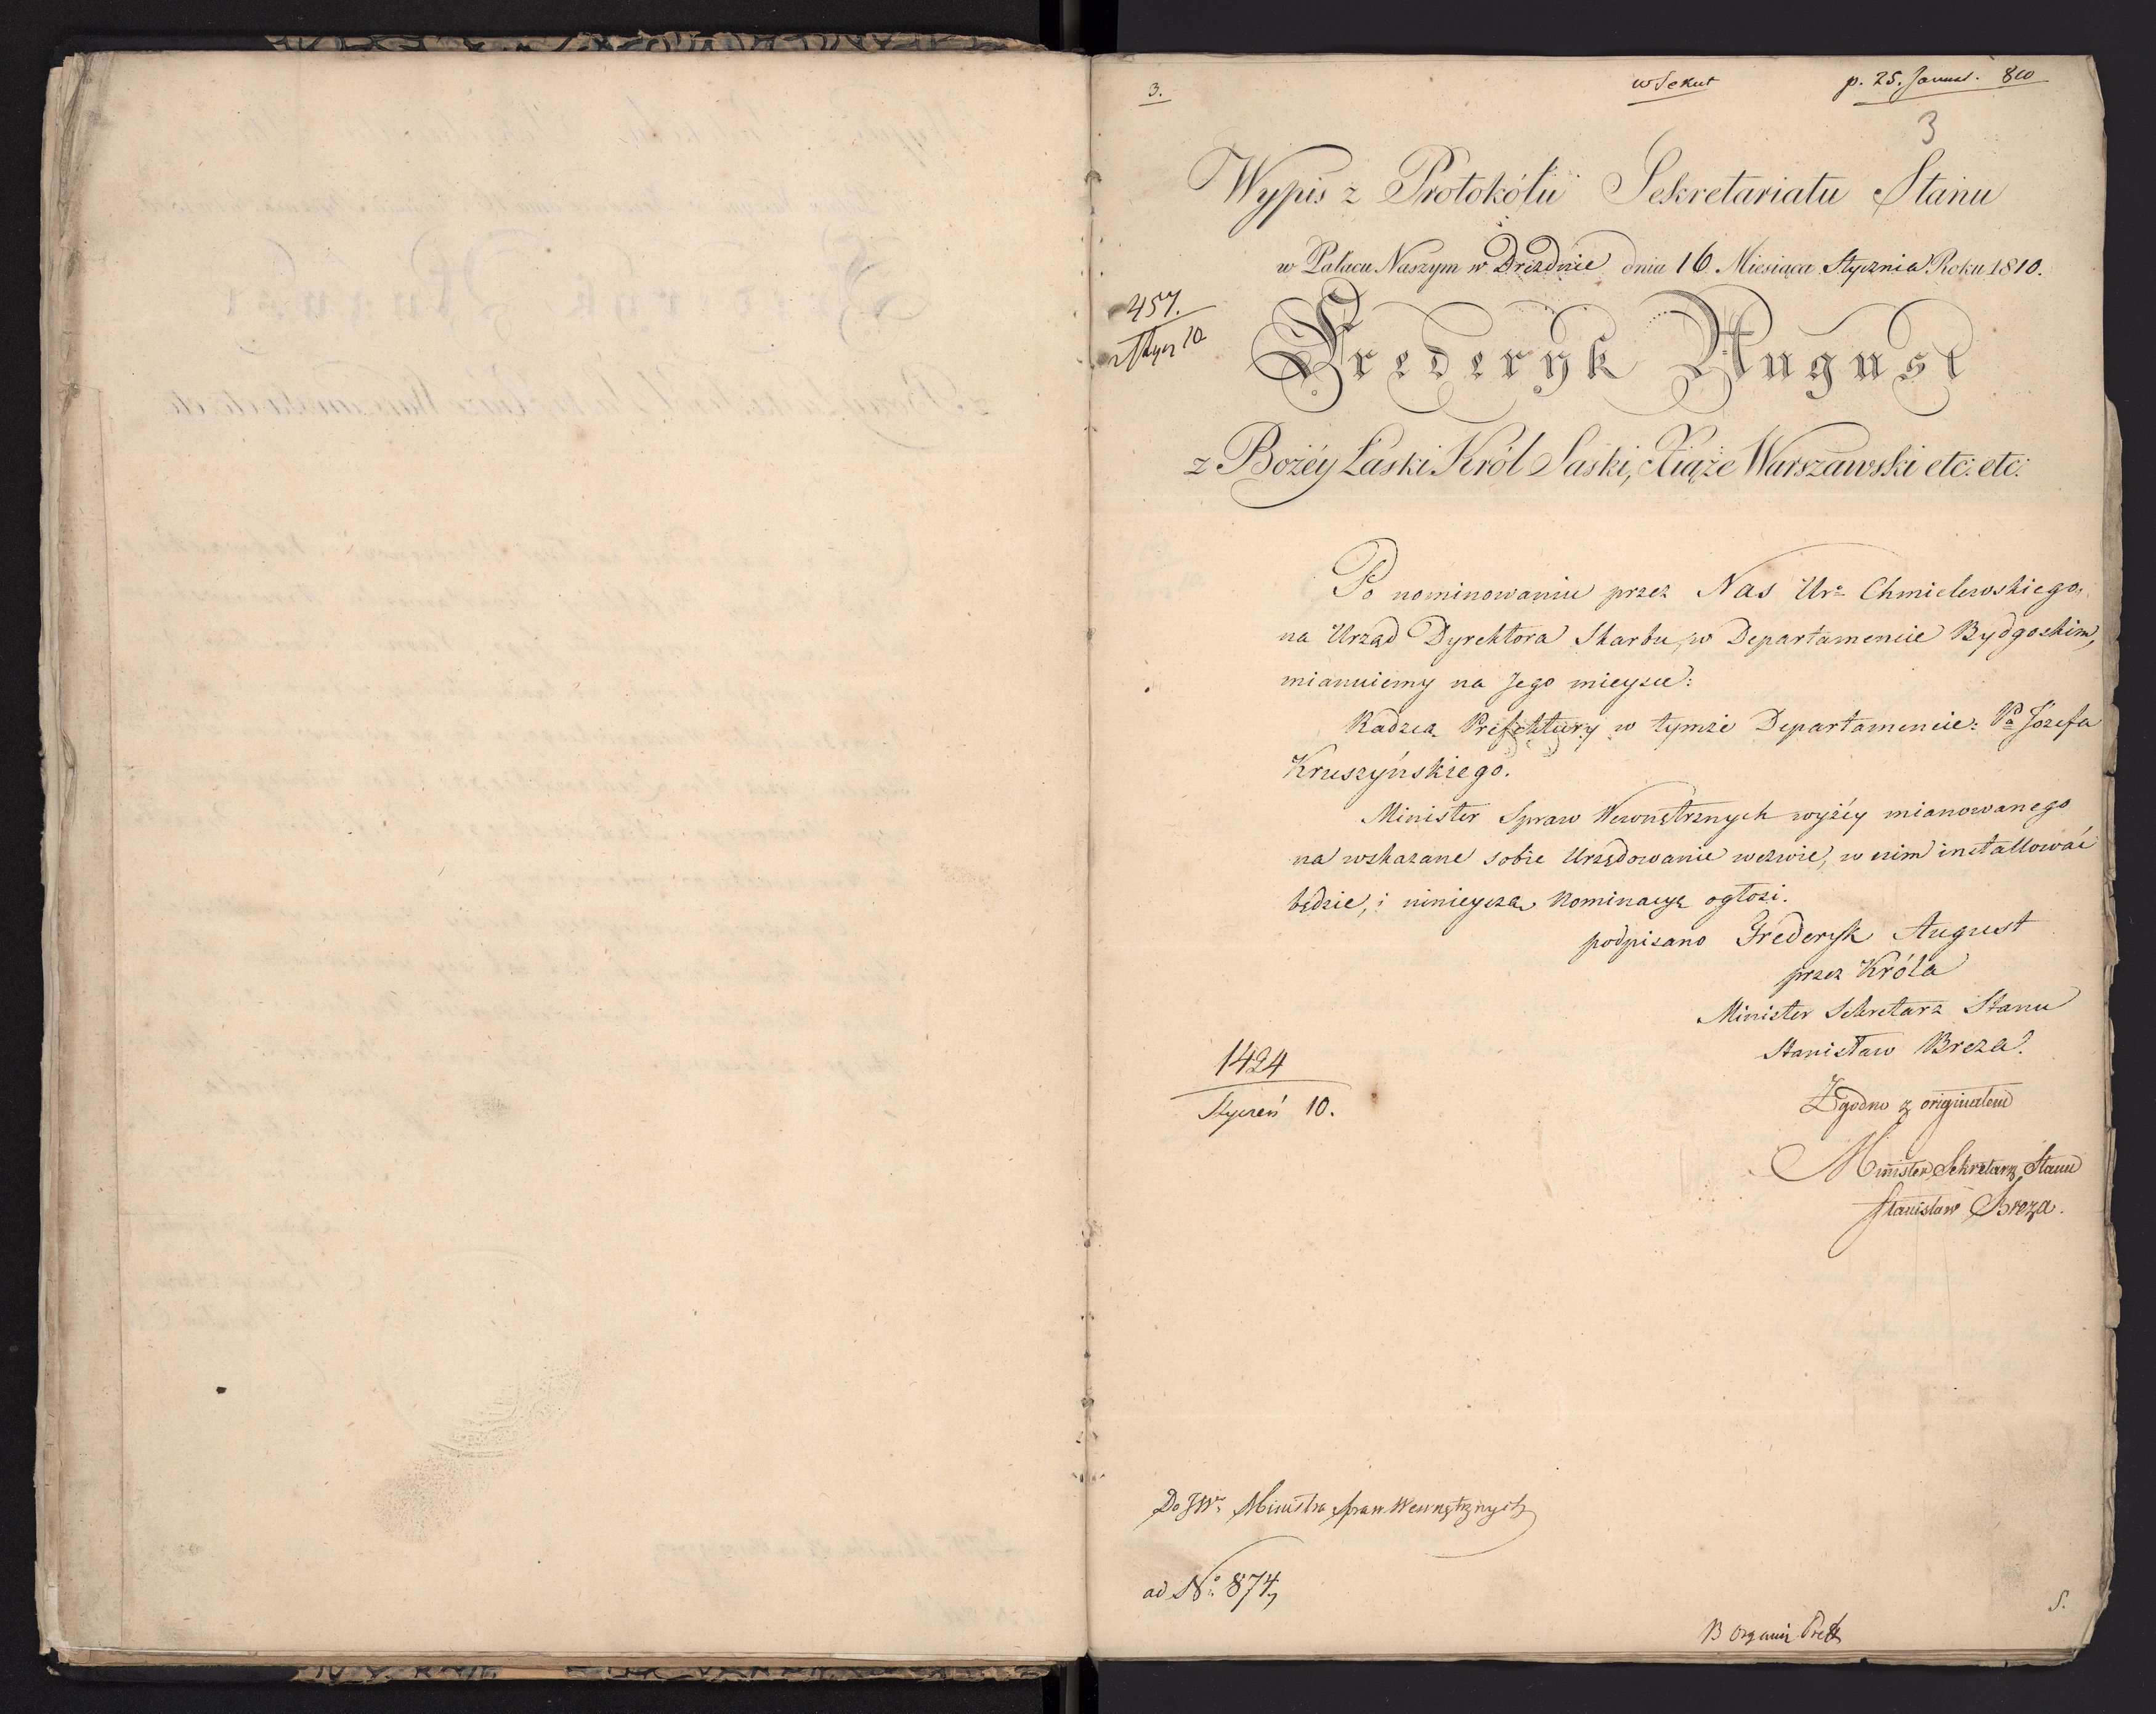 3.
w Sekret
p. 25. Januar. 810
3
Wypis z Protokółu Sekretariatu Stanu
w Pałacu Naszym w Dreźdnie dnia 16 Miesiąca Stycznia Roku 1810.
457.
Stycz 10
Frederyk August
z Bożéy Łaski Król Saski, Xiąże Warszawski etc: etc:
Po nominowaniu przez Nas Uro Chmielewskiego,
na Urząd Dyrektora Skarbu, w Departamencie Bydgoskim,
mianuiemy na Jego mieysce:
Radzcą Prefektury w tymże Departamencie: Pa Józefa
Kruszyńskiego.
Minister Spraw Wewnętrznych wyżéy mianowanego
na wskazane sobie Urzędowanie wezwie, w nim installować
będzie, i ninieyszą Nominacyą ogłosi.
podpisano Frederyk August
przez Króla
Minister Sekretarz Stanu
Stanisław Breza.
1424
Styczeń 10.
Zgodno z originałem
Minister Sekretarz Stanu
Stanisław Breza.
Do JWo Ministra Spraw Wewnętrznych
ad No: 874,
S.
B Organiz Pref